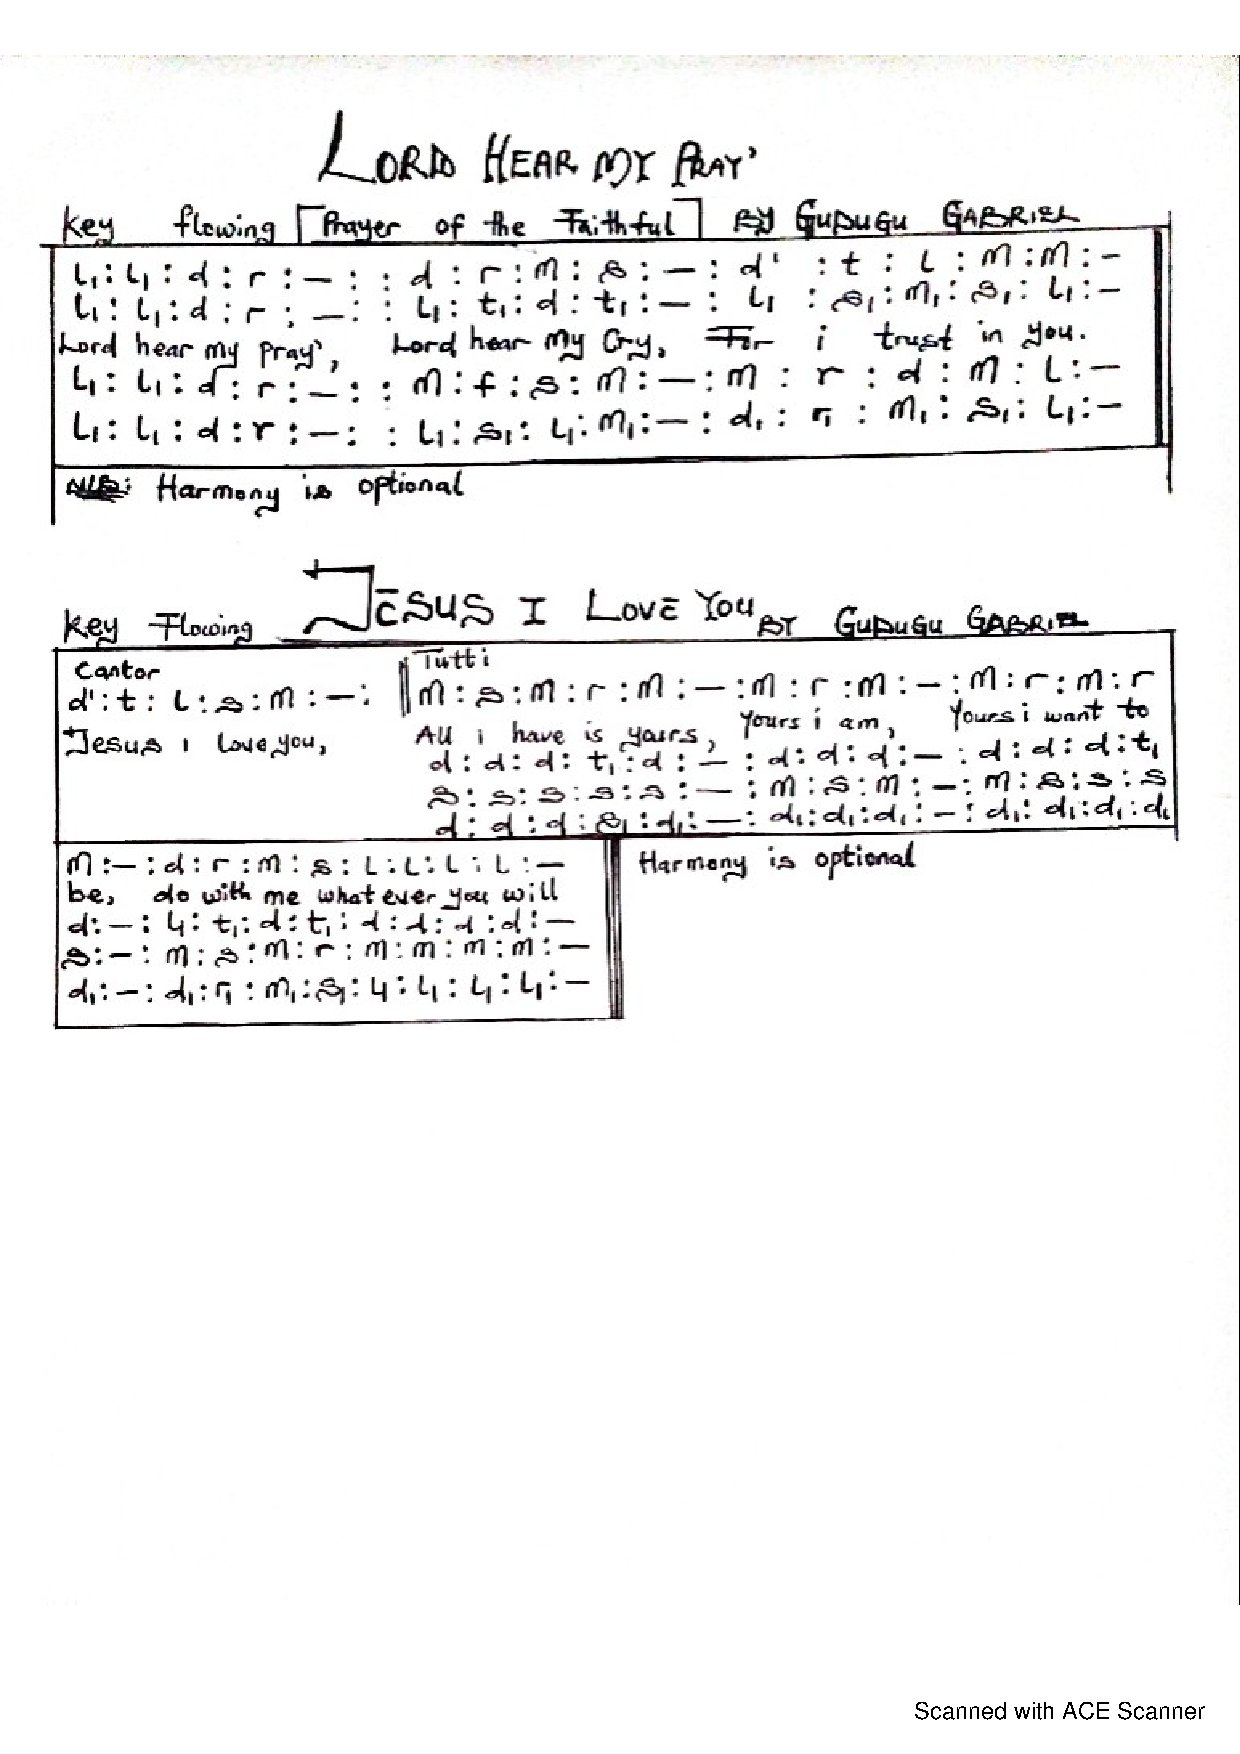 LORD HEAR MY PRAY'
Key flowing [Prayer of the Faithful] BY GUDUGU GABRIEL
L₁: L₁: d: r: –: : d: r: m: s: –: d' : t : L : m: m: –
L₁: L₁: d: r: –: : L₁: t₁: d: t₁: –: L₁ : s₁: m₁: s₁: L₁: –
Lord hear my pray', Lord hear my cry, For i trust in you.
L₁: L₁: d: r: –: : m: f: s: m: –: m : r : d: m: L: –
L₁: L₁: d: r: –: : L₁: s₁: L₁: m₁: –: d₁ : r₁ : m₁: s₁: L₁: –
: Harmony is optional
JESUS I LOVE YOU
Key Flowing BY GUDUGU GABRIEL
Cantor Tutti
d': t: L: s: m: –: m: s: m: r: m: –: m: r: m: –: m: r: m: r
Jesus i love you, All i have is yours, Yours i am, Yours i want to
d: d: d: t₁: d: –: d: d: d: –: d: d: d: t₁
s: s: s: s: s: –: m: s: m: –: m: s: s: s
d: d: d: s₁: d₁: –: d₁: d₁: d₁: –: d₁: d₁: d₁: d₁
m: –: d: r: m: s: L: L: L: L: – Harmony is optional
be, do with me what ever you will
d: –: L₁: t₁: d: t₁: d: d: d: d: –
s: –: m: s: m: r: m: m: m: m: –
d₁: –: d₁: r₁: m₁: s₁: L₁: L₁: L₁: L₁: –
Scanned with ACE Scanner